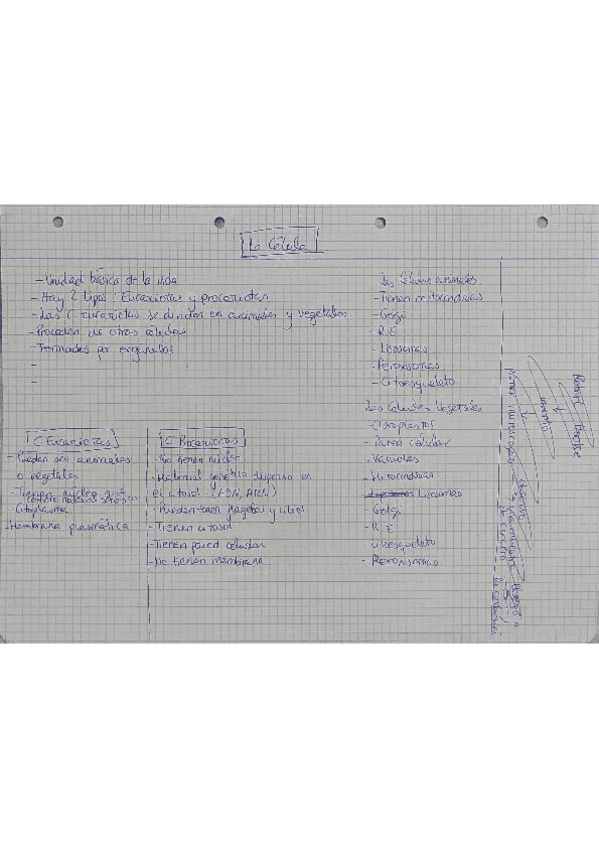 La Célula
- Unidad básica de la vida
- Hay 2 tipos: Eucariotas y procariotas
- Las C. eucariotas se dividen en animales y vegetales
- Proceden de otras células
- Formadas por organulos
-
-
C Eucariotas
- Pueden ser animales
o vegetales
- Tienen núcleo
contiene material genético
Citoplasma
- Membrana plasmática
C Procariotas
- No tienen núcleo
- Material genético disperso en
el citosol (ADN, ARN)
- Pueden tener flagelos y cilios
- Tienen citosol
- Tienen pared celular
- No tienen membrana
Las Células animales
- Tienen mitocondrias
- Golgi
- R.E
- Lisosomas
- Peroxisomas
- Citoesqueleto
Las Células Vegetales
- Cloroplastos
- Pared célular
- Vacuolas
- Mitocondrias
Lisosomas
- Golgi
- R.E
citoesqueleto
- Peroxisomas
Robert Hooke
invento
Primer microscopio